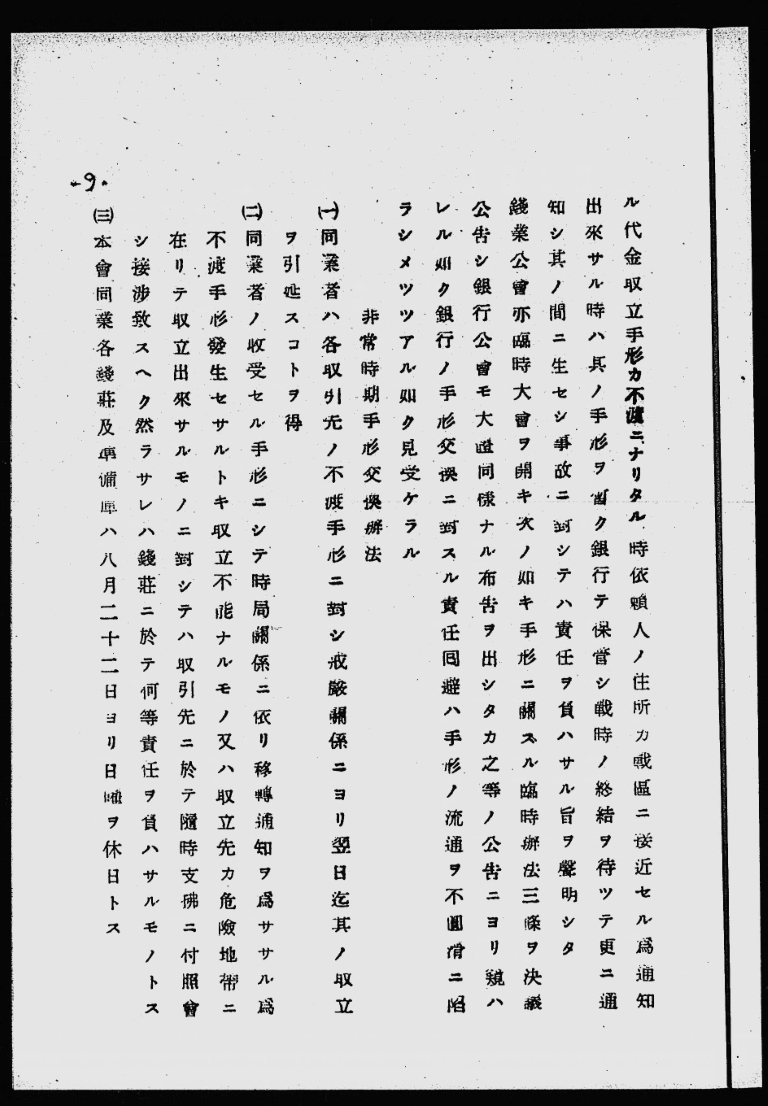 ル代金取立手形カ不渡ニナリタル時依頼人ノ住所カ戰區ニ接近セル爲通知
出來サル時ハ其ノ手形ヲ暫ク銀行テ保管シ戰時ノ終結ヲ待ツテ更ニ通
知シ其ノ間ニ生セシ事故ニ對シテハ責任ヲ負ハサル旨ヲ聲明シタ
錢業公會亦臨時大會ヲ開キ次ノ如キ手形ニ關スル臨時辦法三條ヲ決議
公告シ銀行公會モ大體同樣ナル布告ヲ出シタカ之等ノ公告ニヨリ窺ハ
レル如ク銀行ノ手形交換ニ對スル責任囘避ハ手形ノ流通ヲ不圓滑ニ陷
ラシメツツアル如ク見受ケラル
非常時期手形交換辦法
㈠同業者ハ各取引先ノ不渡手形ニ對シ戒嚴關係ニヨリ翌日迄其ノ取立
ヲ引延スコトヲ得
㈡同業者ノ收受セル手形ニシテ時局關係ニ依リ移轉通知ヲ爲ササル爲
不渡手形發生セサルトキ取立不能ナルモノ又ハ取立先カ危險地帶ニ
在リテ取立出來サルモノニ對シテハ取引先ニ於テ隨時支拂ニ付照會
シ接渉致スヘク然ラサレハ錢莊ニ於テ何等責任ヲ負ハサルモノトス
㈢本會同業各錢莊及準備庫ハ八月二十二日ヨリ日曜ヲ休日トス
-9.